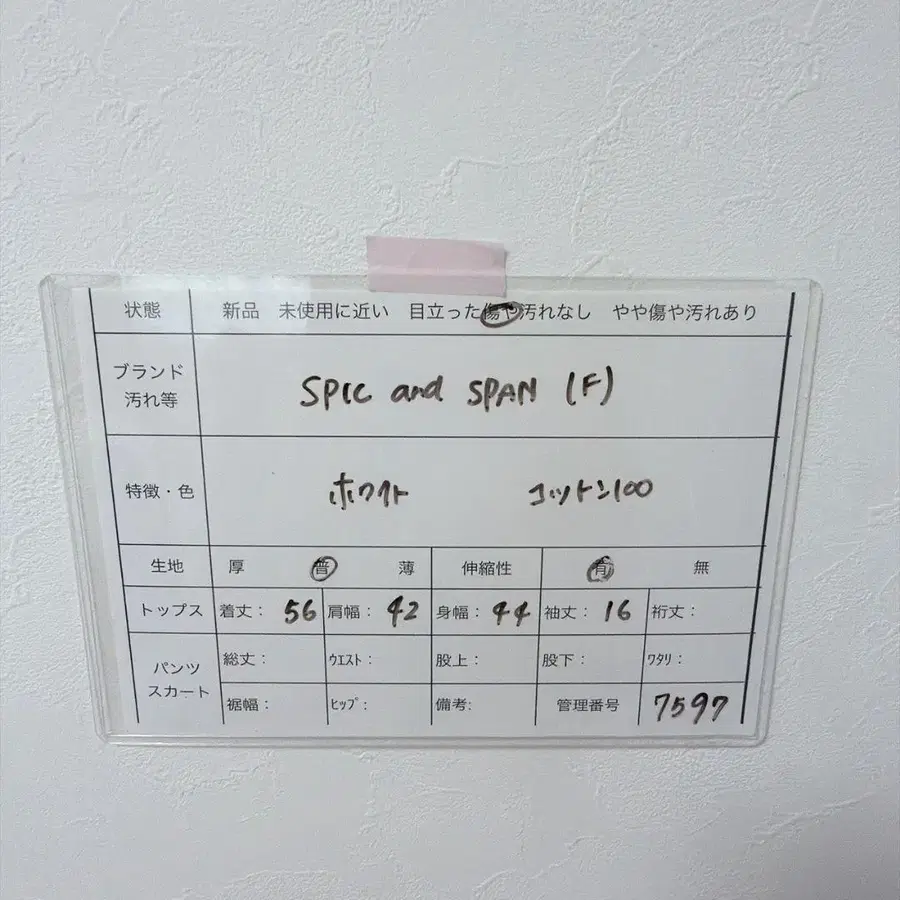 状態 新品 未使用に近い 目立った傷や汚れなし やや傷や汚れあり
ブランド
汚れ等
SPIC and SPAN (F)
特徴・色 ホワイト コットン100
生地 厚 普 薄 伸縮性 有 無
トップス 着丈: 56 肩幅: 42 身幅: 44 袖丈: 16 裄丈:
パンツ
スカート
総丈: ウエスト: 股上: 股下: ワタリ:
裾幅: ヒップ: 備考: 管理番号 7597